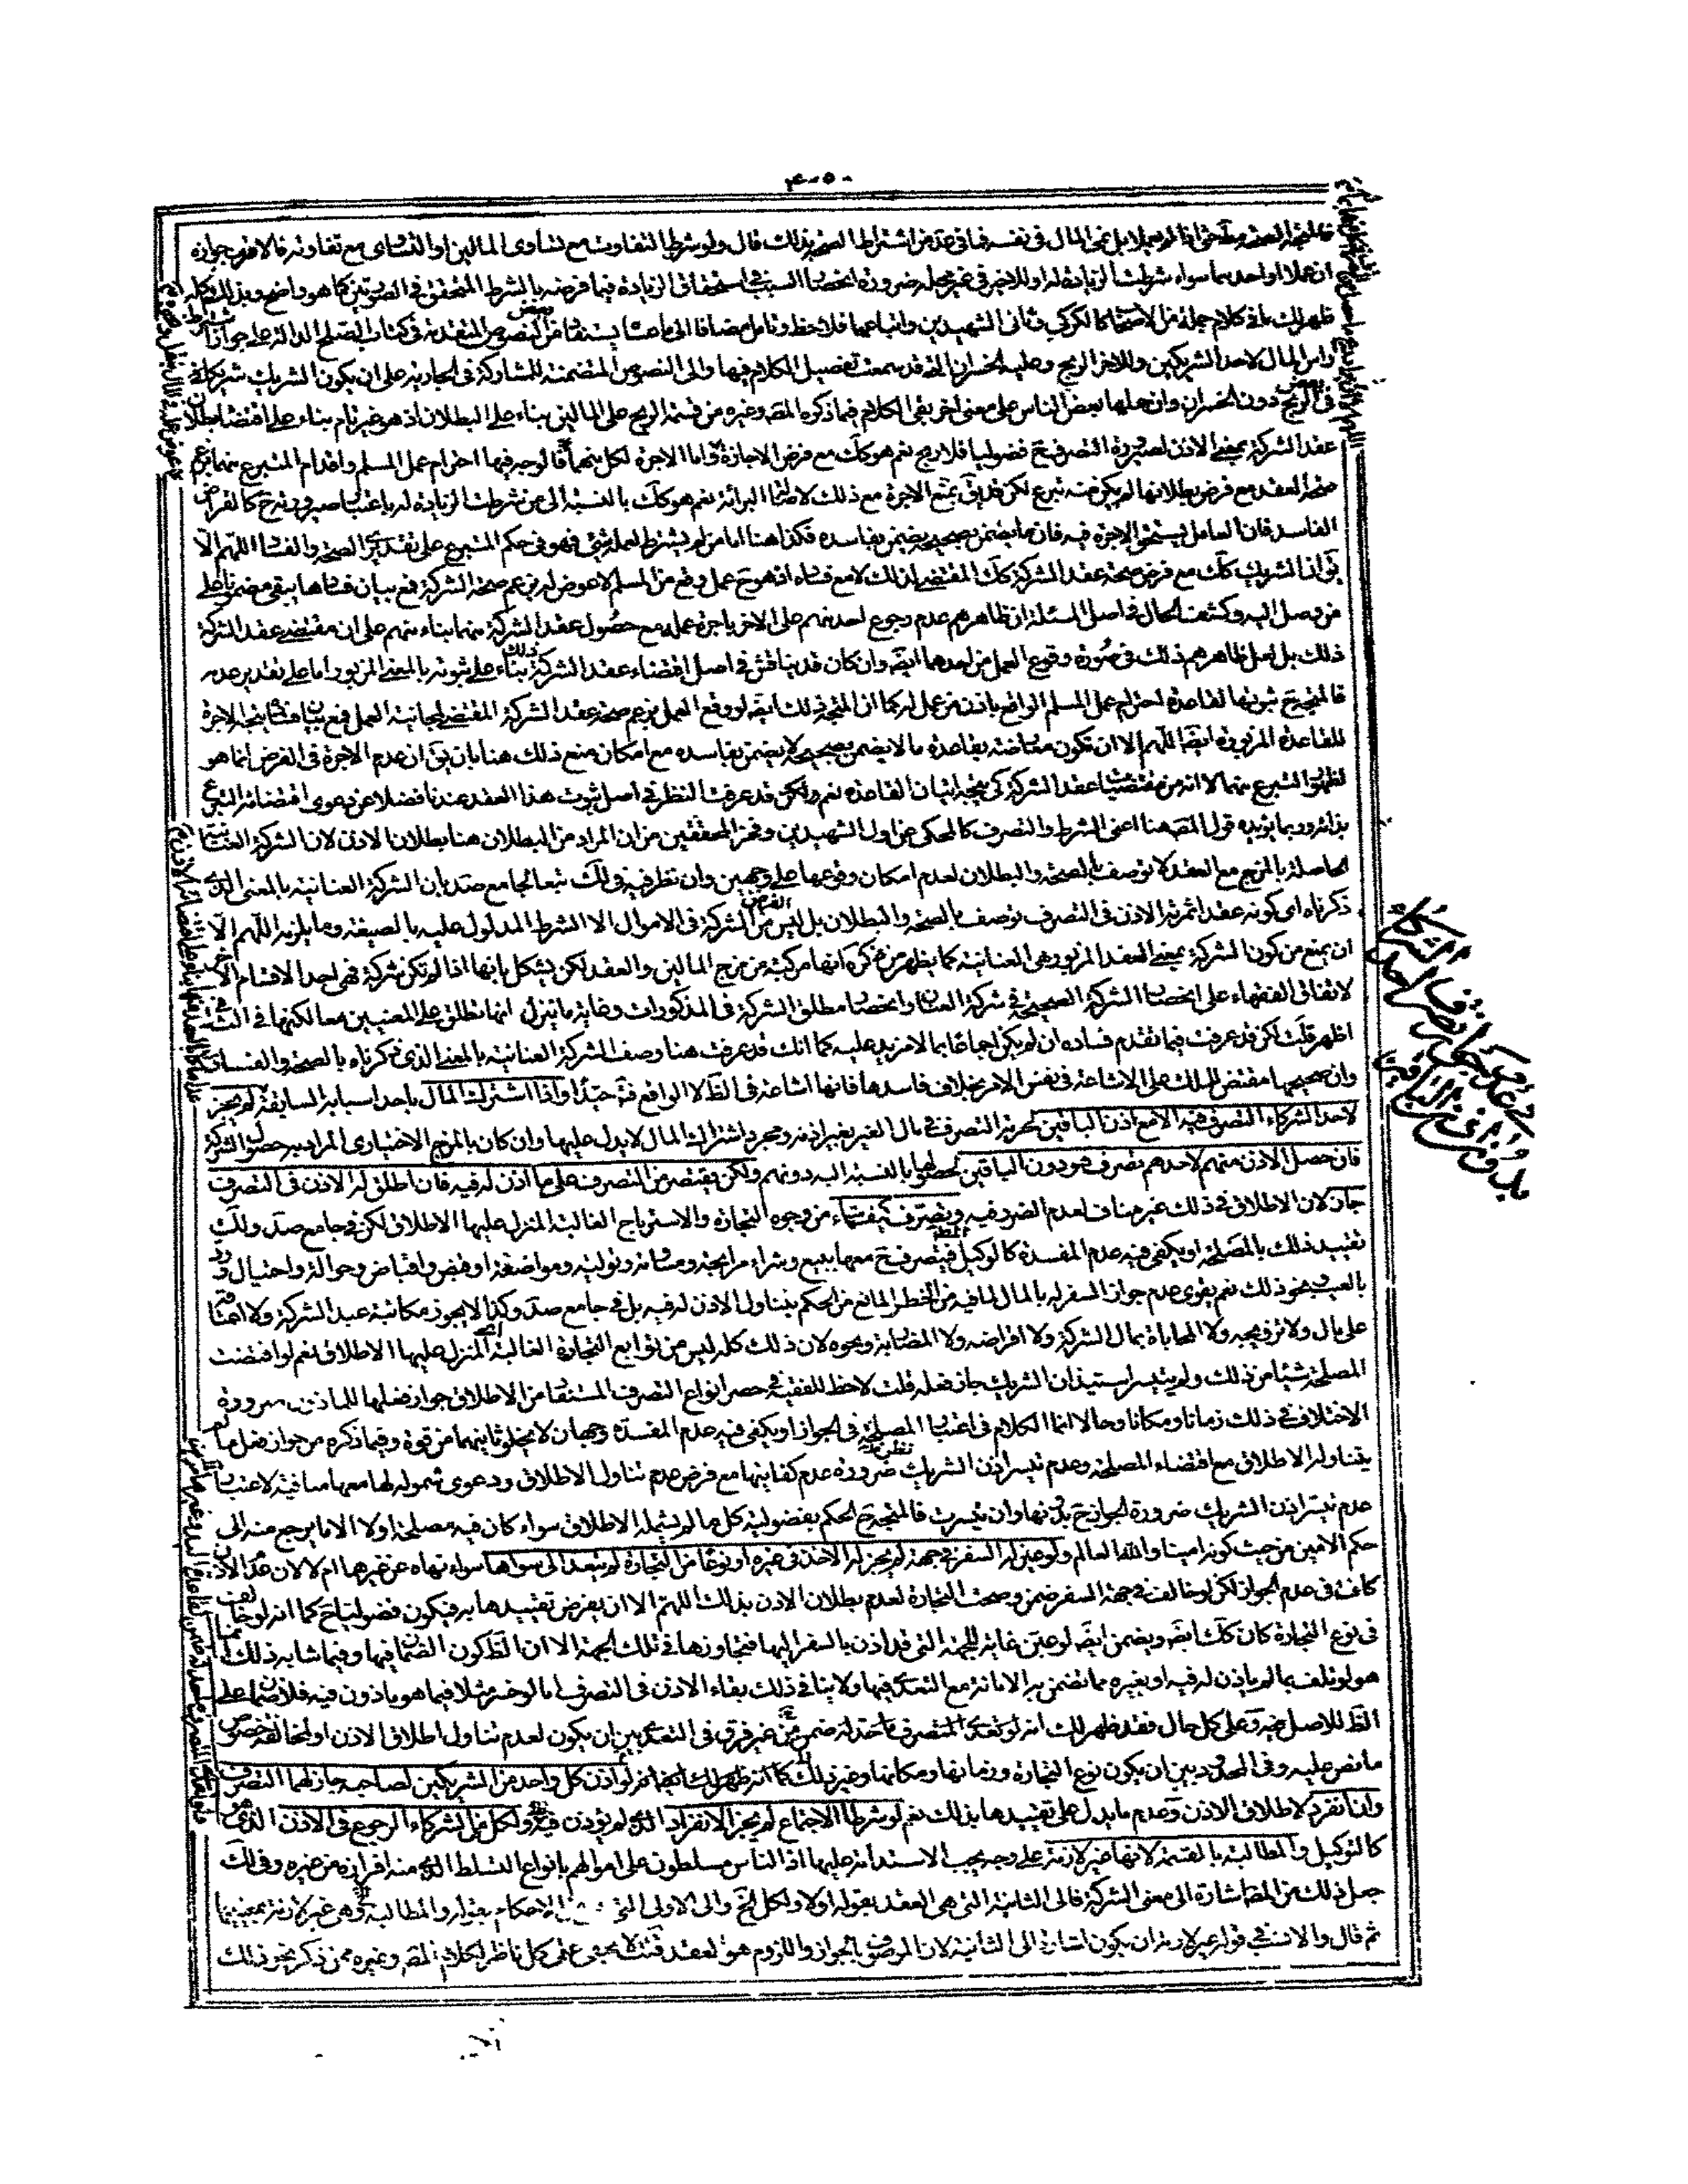 فالمتجه الصحة مطلقا حتى إذا لم يعملا بل نمى المال فى نفسه فما فى عد من اشتراط الصحة بذلك قال ولو شرطا التفاوت مع تساوى المالين او التساوى مع تفاوته فالاقرب جوازه
ان عملا او احدهما سواء شرطت الزيادة له او للاخر فى غير محله ضرورة انحصار السبب فى استحقاق الزيادة فيما فرضه بالشرط المتحقق فى الصورتين كما هو واضح وبذلك كله
ظهر لك ما فى كلام جملة من الاصحاب كالكركى وثانى الشهيدين واتباعهما فلاحظ وتامل مضافا الى ما عساه يستفاد من بعض النصوص المتقدمة فى كتاب الصلح الدالة على جواز
راس المال لاحد الشريكين وللاخر الربح وعليه الخسران التى قد سمعت تفصيل الكلام فيها والى النصوص المتضمنة للمشاركة فى الجارية على ان يكون الشريك شريكا له
فى الربح دون الخسران وان حملها بعض الناس على معنى اخر بقى الكلام فيما ذكره المصّ وغيره من قسمة الربح على المالين بناء على البطلان اذ هو غير تام بناء على اقتضاء بطلان
عقد الشركة بمعنى الاذن لصيرورة التصرف ح فضوليا فلا ربح نعم هو كك مع فرض الاجازة واما الاجرة لكل منهما فالوجه فيها احترام عمل المسلم واقدام المتبرع منهما بزعم
صحة العقد مع فرض بطلانها لم يكن منه تبرع لكن قد يق بمنع الاجرة مع ذلك لاصالة البرائة نعم هو كك بالنسبة الى من شرطت الزيادة له باعتبار صيرورته ح كالقراض
الفاسد فان العامل يستحق الاجرة فيه فان ما يضمن بصحيحه يضمن بفاسده فكذا هنا اما من لم يشترط لعمله شئ فهو فى حكم المتبرع على تقديرى الصحة والفساد اللهم الا
ان يق ان الشريك كك مع فرض صحة عقد الشركة كك المقتضى لذلك لا مع فساده اذ هو ح عمل وقع من المسلم لا عوض له بزعم صحة الشركة فمع بيان فسادها يبقى مضمونا على
من وصل اليه وكشف الحال فى اصل المسئلة ان ظاهرهم عدم رجوع احد منهم على الاخر باجرة عمله مع حصول عقد الشركة منهما بناء منهم على ان مقتضى عقد الشركة
ذلك بل لعل ظاهرهم ذلك فى صورة وقوع العمل من احدهما ايضّ وان كان قد يناقش فى اصل اقتضاء عقد الشركة ذلك بناء على ثبوته بالمعنى المزبور اما على تقدير عدمه
فالمتجه ح ثبوتها لقاعدة احترام عمل المسلم الواقع باذن من عمل له كما ان المتجه ذلك ايضّ لو وقع العمل بزعم صحة عقد الشركة المقتضى لمجانية العمل فمع بيان فسادها يتجه الاجرة
للقاعدة المزبورة ايضّ اللهم الا ان تكون معارضة بقاعدة ما لا يضمن بصحيحه لا يضمن بفاسده مع امكان منع ذلك هنا بان يق ان عدم الاجرة فى الفرض انما هو
لظهور التبرع منهما لا انه من مقتضيات عقد الشركة كى يتجه اتيان القاعدة نعم ولكن قد عرفت النظر فى اصل ثبوت هذا العقد عندنا فضلا عن دعوى اقتضائه التبرع
بذاته وربما يؤيده قول المصّ هنا اعنى الشرط والتصرف كالمحكى عن اول الشهيدين وفخر المحققين من ان المراد من البطلان هنا بطلان الاذن لان الشركة العنانية
الحاصلة بالمزج مع العقد لا توصف بالصحة والبطلان لعدم امكان وقوعها على وجهين وان نظر فيه فى لك تبعا لجامع صد بان الشركة العنانية بالمعنى الذى
ذكرناه اى كونه عقدا ثمرته الاذن فى التصرف توصف بالصحة والبطلان بل ليس الغرض من الشركة فى الاموال الا الشرط المدلول عليه بالصيغة وما يلزمه اللهم الا
ان يمنع من كون الشركة بمعنى العقد المزبور وهى العنانية كما يظهر من ذكره انها مركبة من مزج المالين والعقد لكن يشكل بانها اذا لم تكن شركة فهى احد الاقسام الاخر
لاتفاق الفقهاء على انحصار الشركة الصحيحة فى شركة العنان وانحصار مطلق الشركة فى المذكورات وغاية ما يتنزل انها تطلق على المعنيين معا لكنها فى الثانى
اظهر قلت لكن قد عرفت فيما تقدم فساده ان لم يكن اجماعا بما لا مزيد عليه كما انك قد عرفت هنا وصف الشركة العنانية بالمعنى الذى ذكرناه بالصحة والفساد
وان صحيحها مقتض للملك على الاشاعة فى نفس الامر بخلاف فاسدها فانها اشاعة فى الظّ لا الواقع فتّ جيّدا واذا اشترك المال باحد اسبابه السابقة لم يجز
لاحد الشركاء التصرف فيه الا مع اذن الباقين لحرمة التصرف فى مال الغير بغير اذنه ومجرد اشتراك المال لا يدل عليها وان كان بالمزج الاختيارى المراد به حصول الشركة
فان حصل الاذن منهم لاحدهم تصرف هو دون الباقين لحصولها بالنسبة اليه دونهم ولكن يقتصر من التصرف على ما اذن له فيه فان اطلق له الاذن فى التصرف
جاز لان الاطلاق فى ذلك غير مناف لعدم الضرر فيه ويتصرف كيف شاء من وجوه التجارة والاسترباح الغالبة المنزل عليها الاطلاق لكن فى جامع صد ولك
تقييد ذلك بالمصلحة او يكفى فيه عدم المفسدة كالوكيل فيتصرف ح معها ببيع وشراء مرابحة ومساومة وتولية ومواضعة وقبض واقباض وحوالة واحتيال ورد
بالعيب ونحو ذلك نعم يقوى عدم جواز السفر له بالمال لما فيه من الخطر المانع من الحكم بتناول الاذن له فيه بل فى جامع صد وكذا لا يجوز مكاتبة عبد الشركة ولا اعتاقه
على مال ولا تزويجه ولا المحاباة بمال الشركة ولا اقراضه ولا المضاربة ونحوه لان ذلك كله ليس من توابع التجارة الغالبة المنزل عليها الاطلاق نعم لو اقتضت
المصلحة شيئا من ذلك ولم يتيسر استيذان الشريك جاز فعله قلت لا حظ للفقيه فى حصر انواع التصرف المستفاد من الاطلاق جواز فعلها للماذون ضرورة
الاختلاف فى ذلك زمانا ومكانا وحالا انما الكلام فى اعتبار المصلحة فى الجواز او يكفى فيه عدم المفسدة وجهان لا يخلو ثانيهما من قوة وفيما ذكره من جواز فعل ما لم
يتناوله الاطلاق مع اقتضاء المصلحة وعدم تيسر اذن الشريك ضرورة عدم كفايتها مع فرض عدم تناول الاطلاق ودعوى شموله لها معها منافية لاعتبار
عدم تيسر اذن الشريك ضرورة الجواز ح بدونها وان تيسرت فالمتجه ح الحكم بفضولية كل ما لم يشمله الاطلاق سواء كان فيه مصلحة اولا الا ما يرجع منه الى
حكم الامين من حيث كونه امينا والله العالم ولو عين له السفر فى جهة لم يجز له الاخذ فى غيره او نوعا من التجارة لم يتعد الى سواها سواء نهاه عن غيرها ام لا لان عدم الاذن
كاف فى عدم الجواز لكن لو خالف فى جهة السفر ضمن وصحت التجارة لعدم بطلان الاذن بذلك اللهم الا ان يفرض تقييدها به فيكون فضوليا ح كما انه لو خالف
فى نوع التجارة كان كك ايضّ ويضمن ايضّ لو عين غاية للجهة التى قد اذن بالسفر اليها فتجاوزها فى تلك الجهة الا ان الظّ كون الضمان فيها وفيما شابه ذلك انما
هو لو تلف بما لم ياذن له فيه او بغيره مما تضمن به الامانة مع التعدى فيها ولا ينافى ذلك بقاء الاذن فى التصرف اما لو خسر مثلا فيما هو ماذون فيه فلا ضمان على
الظّ للاصل وغيره وعلى كل حال فقد ظهر لك انه لو تعدى المتصرف ما حد له ضمن من غير فرق فى التعدى بين ان يكون لعدم تناول اطلاق الاذن او لمخالفة خصوص
ما نص عليه وفى المحدود بين ان يكون نوع التجارة وزمانها ومكانها وغير ذلك كما انه ظهر لك ايضّ انه لو اذن كل واحد من الشريكين لصاحبه جاز لهما التصرف
وان انفرد لاطلاق الاذن وعدم ما يدل على تقييدها بذلك نعم لو شرطا الاجتماع لم يجز الانفراد الذى لم يؤذن فيه ولكل من الشركاء الرجوع فى الاذن الذى هو
كالتوكيل والمطالبة بالقسمة لانها غير لازمة على وجه يجب الاستدامة عليها اذ الناس مسلطون على اموالهم بانواع التسلط الذى منه افرازه من غيره وفى لك
جعل ذلك من المصّ اشارة الى معنى الشركة فالى الثانية التى هى العقد بقوله اولا ولكل الخ والى الاولى الاحكام بقوله والمطالبة وهى غير لازمة بمعنييها
ثم قال والانسب فى قوله غير لازمة ان يكون اشارة الى الثانية لان الموصوف بالجواز واللزوم هو العقد قلت لا يخفى على كل ناظر لكلام المصّ وغيره ممن ذكر نحو ذلك